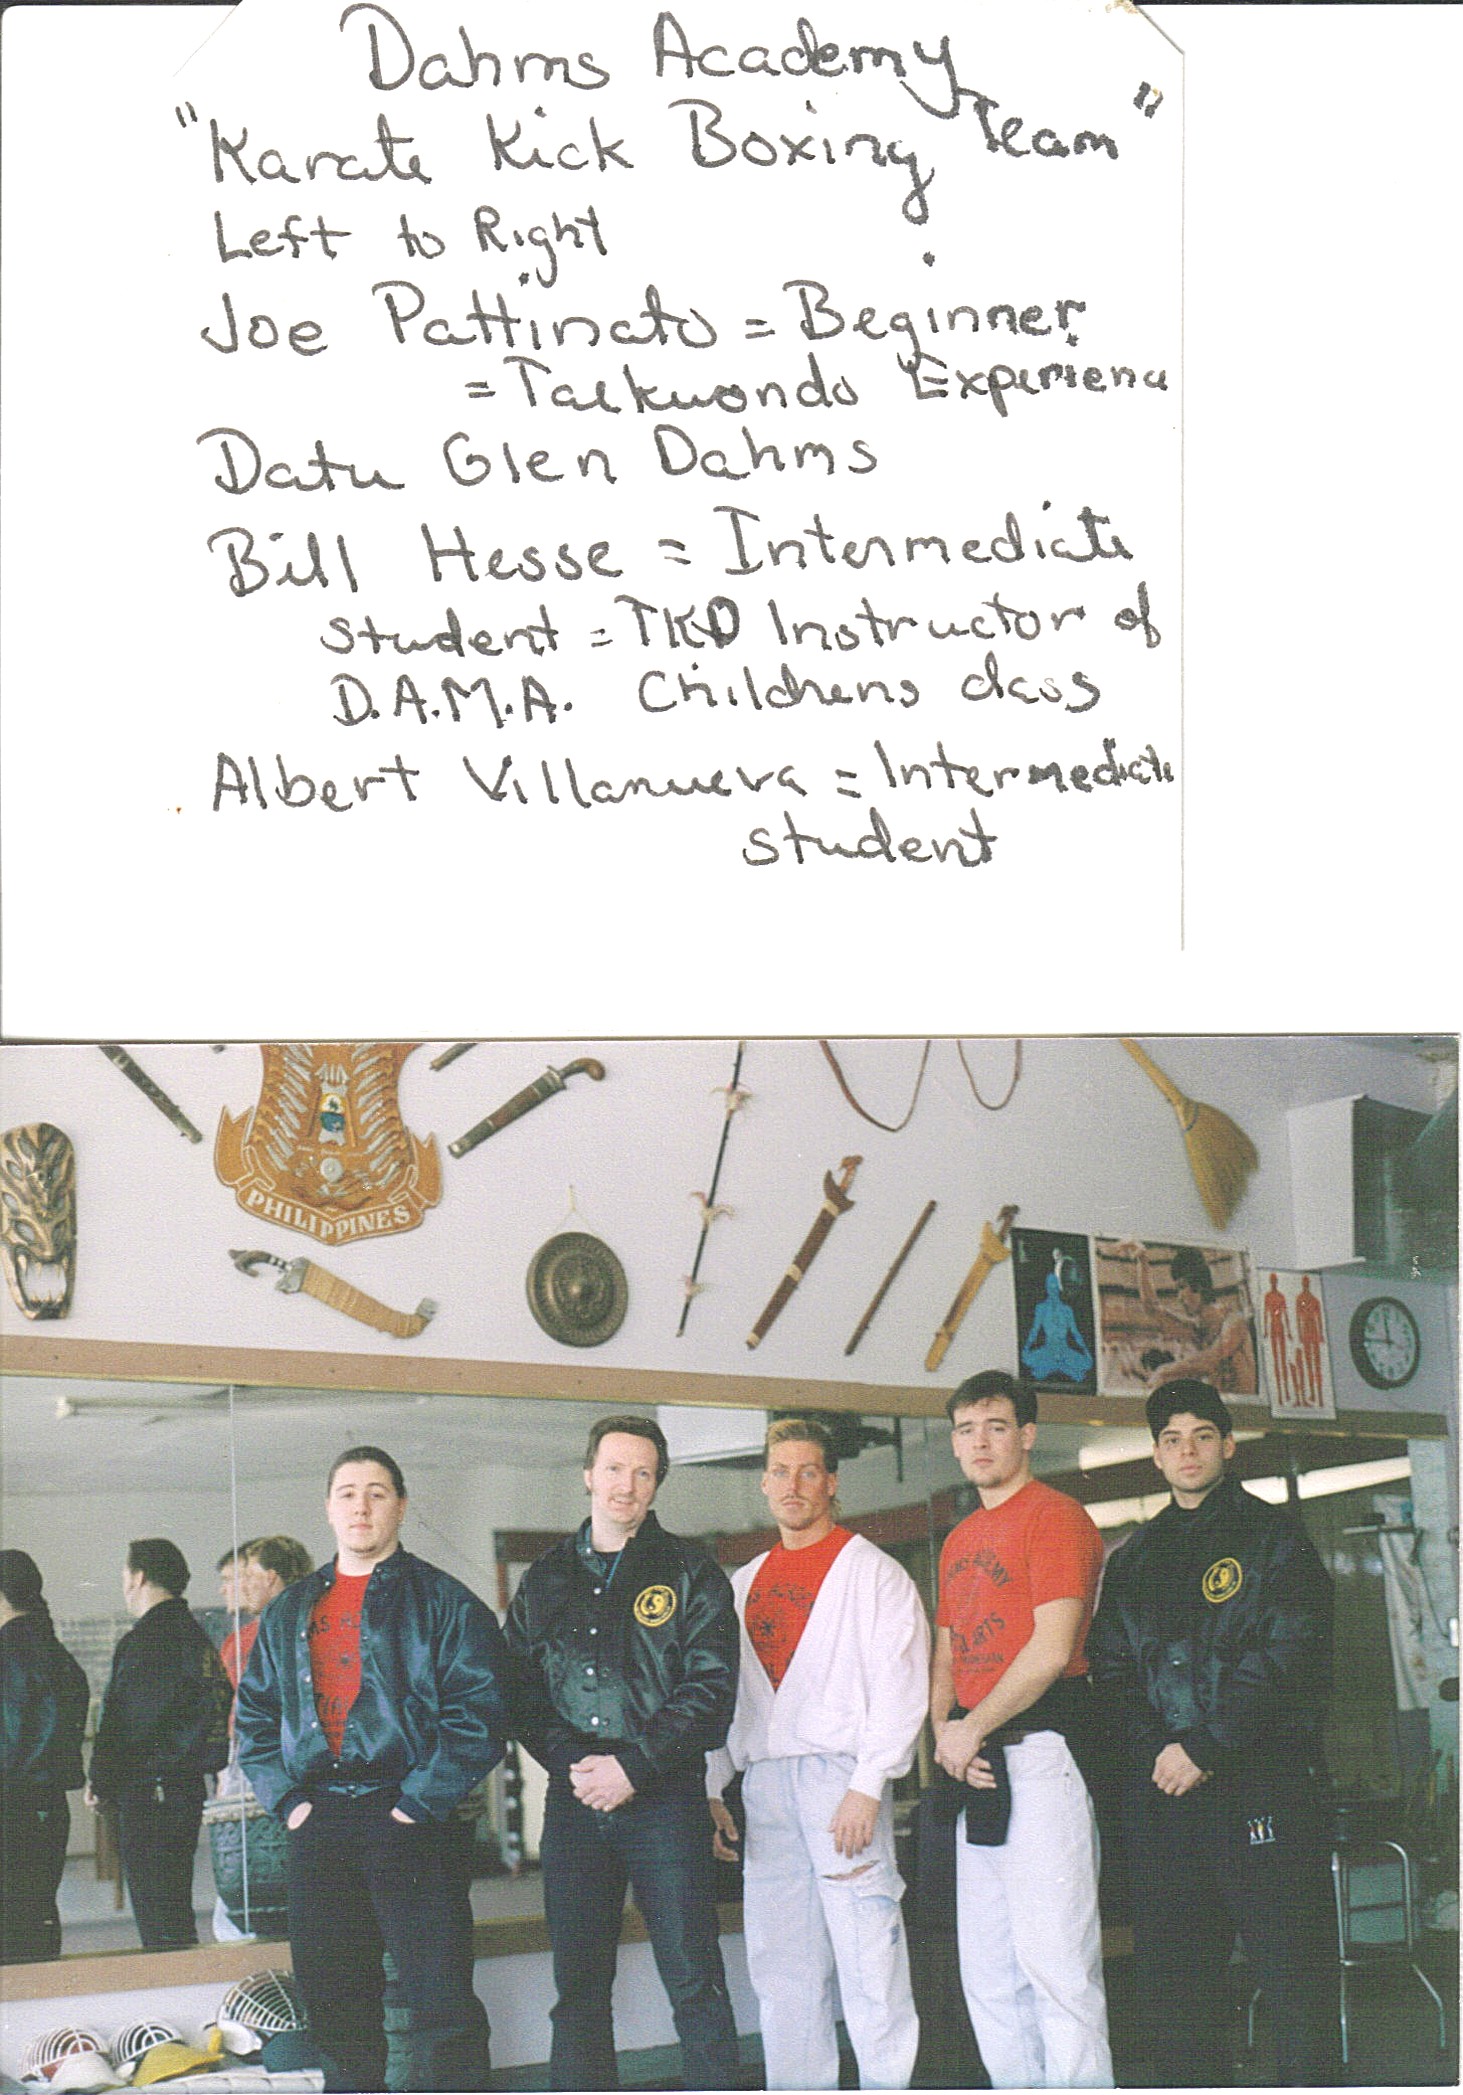 Dahms Academy
"Karate Kick Boxing Team"
Left to Right
Joe Pattinato = Beginner
= Taekwondo Experience
Datu Glen Dahms
Bill Hesse = Intermediate
student = TKD Instructor of
D.A.M.A. Childrens class
Albert Villanueva = Intermediate
student
PHILIPPINES
ACADEMY
ARTS